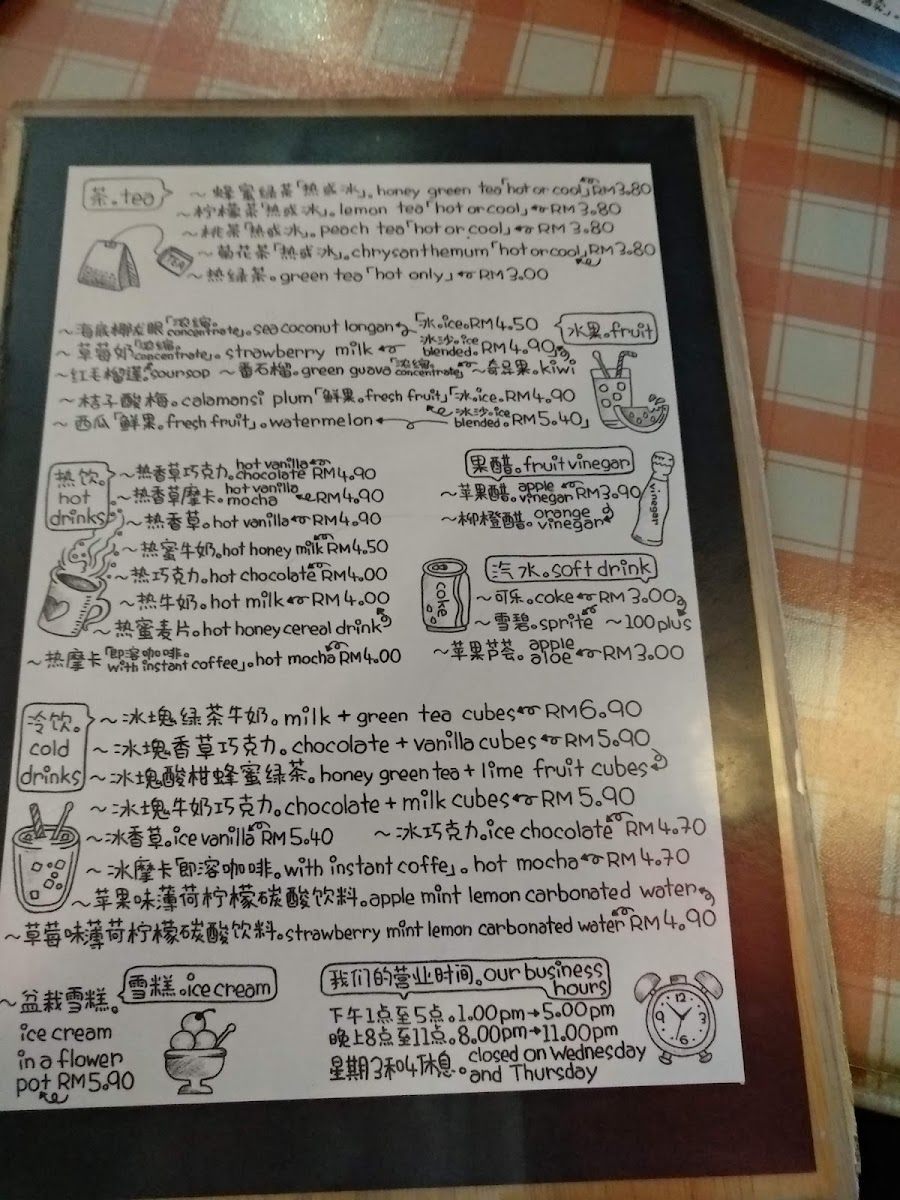 茶。tea
~蜂蜜绿茶「热或冰」。honey green tea「hot or cool」RM3.80
~柠檬茶「热或冰」。lemon tea「hot or cool」RM3.80
~桃茶「热或冰」。peach tea「hot or cool」RM3.80
~菊花茶「热或冰」。chrysanthemum「hot or cool」RM3.80
~热绿茶。green tea「hot only」RM3.00
TEA
水果。fruit
~海底椰龙眼「浓缩。concentrate」。sea coconut longan「冰。ice。RM4.50
~草莓奶「浓缩。concentrate」。strawberry milk 冰沙。ice blended。RM4.90
~红毛榴莲。soursop ~番石榴。green guava「浓缩。concentrate」 ~奇异果。kiwi
~桔子酸梅。calamansi plum「鲜果。fresh fruit」「冰。ice。RM4.90
~西瓜「鲜果。fresh fruit」。watermelon 冰沙。ice blended。RM5.40」
热饮。hot drinks
~热香草巧克力。hot vanilla chocolate RM4.90
~热香草摩卡。hot vanilla mocha RM4.90
~热香草。hot vanilla RM4.90
~热蜜牛奶。hot honey milk RM4.50
~热巧克力。hot chocolate RM4.00
~热牛奶。hot milk RM4.00
~热蜜麦片。hot honey cereal drink
~热摩卡「即溶咖啡。with instant coffee」。hot mocha RM4.00
果醋。fruit vinegar
~苹果醋。apple vinegar RM3.90
~柳橙醋。orange vinegar
vinegar
汽水。soft drink
~可乐。coke RM3.00
~雪碧。sprite ~100plus
~苹果芦荟。apple aloe RM3.00
coke
冷饮。cold drinks
~冰塊绿茶牛奶。milk + green tea cubes RM6.90
~冰塊香草巧克力。chocolate + vanilla cubes RM5.90
~冰塊酸柑蜂蜜绿茶。honey green tea + lime fruit cubes
~冰塊牛奶巧克力。chocolate + milk cubes RM5.90
~冰香草。ice vanilla RM5.40 ~冰巧克力。ice chocolate RM4.70
~冰摩卡「即溶咖啡。with instant coffe」。hot mocha RM4.70
~苹果味薄荷柠檬碳酸饮料。apple mint lemon carbonated water
~草莓味薄荷柠檬碳酸饮料。strawberry mint lemon carbonated water RM4.90
雪糕。ice cream
~盆栽雪糕。
ice cream
in a flower
pot RM5.90
我们的营业时间。our business hours
下午1点至5点。1.00pm→5.00pm
晚上8点至11点。8.00pm→11.00pm
星期3和4休息。closed on Wednesday and Thursday
12
3
6
9